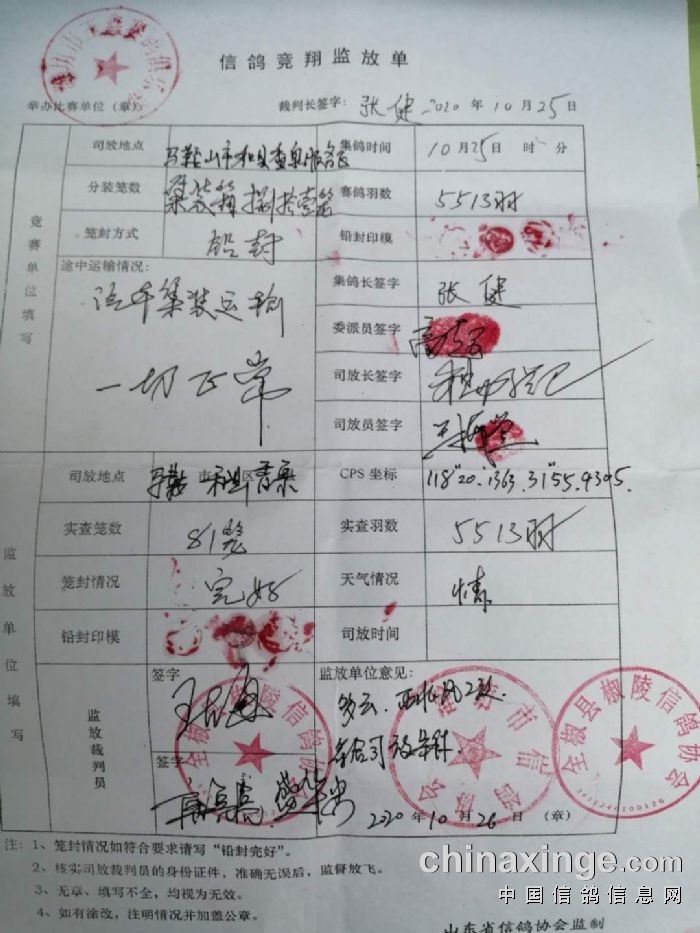 信鸽竞翔监放单
举办比赛单位（章） 裁判长签字：张健 2020年10月25日
竞赛单位填写
司放地点 马鞍山市和县 集鸽时间 10月25日 时 分
分装笼数 集装箱捌拾壹笼 赛鸽羽数 5513羽
笼封方式 铅封 铅封印模
途中运输情况： 集鸽长签字 张健
汽车集装运输 委派员签字
一切正常 司放长签字
司放员签字
监放单位填写
司放地点 马鞍 市 和县 区 CPS坐标 118°20.1363.31°55.9305.
实查笼数 81笼 实查羽数 5513羽
笼封情况 完好 天气情况 晴
铅封印模 司放时间
监放裁判员 签字 监放单位意见：
多云.西北风2级.
签字 符合司放条件.
全椒县椒陵信鸽协会
全椒县椒陵信鸽协会
2020年10月26日（章）
注：1、笼封情况如符合要求请写“铅封完好”。
2、核实司放裁判员的身份证件，准确无误后，监督放飞。
3、无章、填写不全，均视为无效。
4、如有涂改，注明情况并加盖公章。
山东省信鸽协会监制
chinaxinge.com
中国信鸽信息网